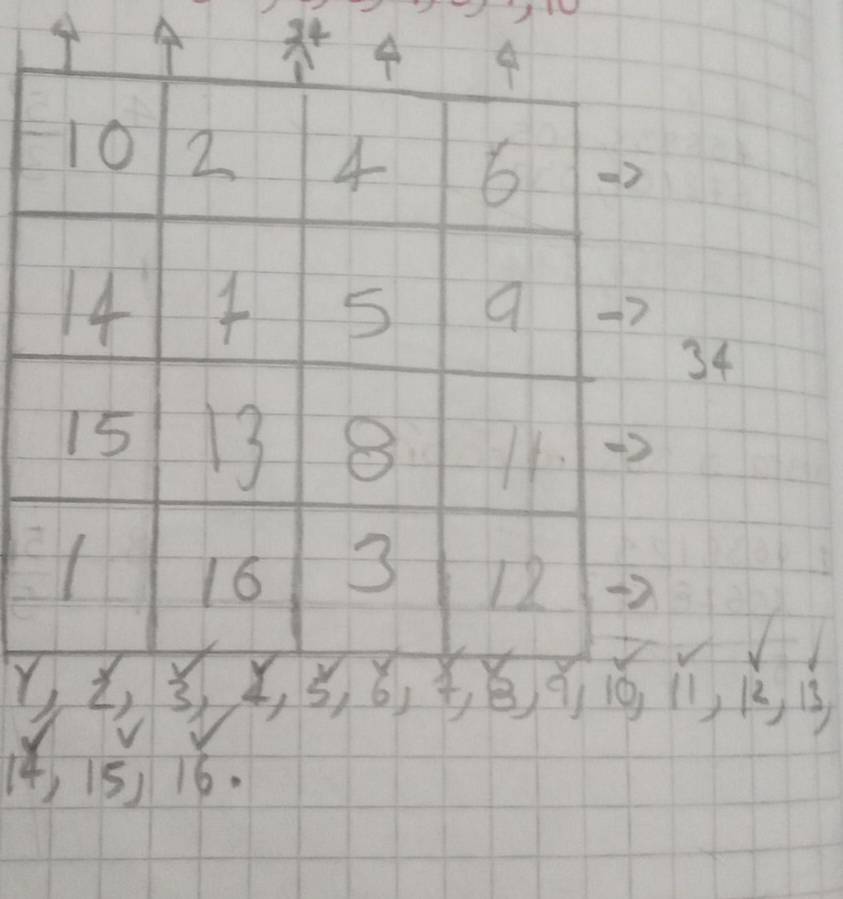 34
10 2 4 6 ->
14 7 5 9 ->
34
15 13 8 11 ->
1 16 3 12 ->
1, 2, 3, 4, 5, 6, 7, 8, 9, 10, 11, 12, 13,
14, 15, 16.